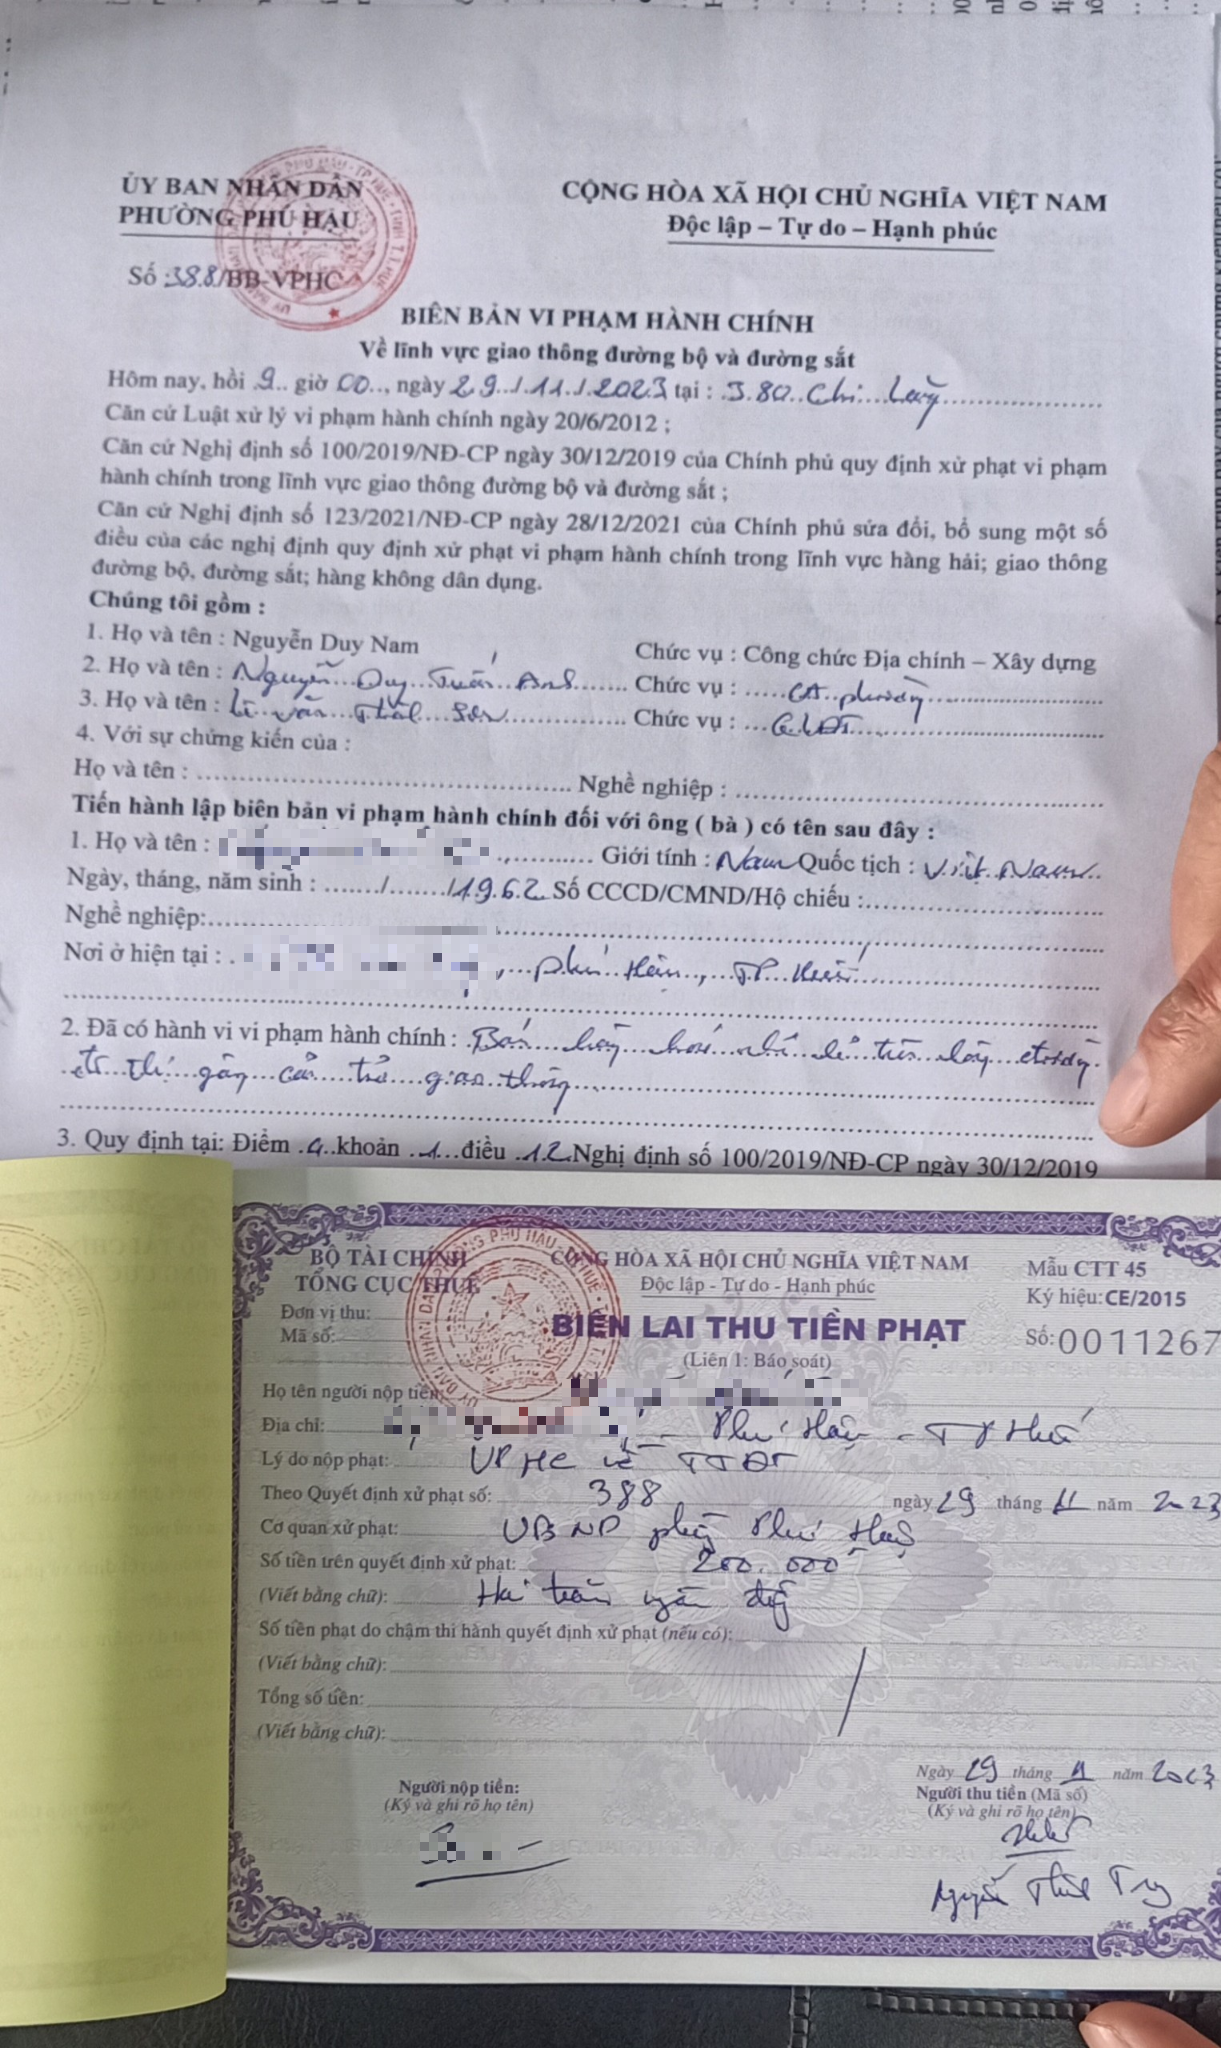 ỦY BAN NHÂN DÂN
PHƯỜNG PHÚ HẬU
CỘNG HÒA XÃ HỘI CHỦ NGHĨA VIỆT NAM
Độc lập – Tự do – Hạnh phúc
Số :388/BB-VPHC
BIÊN BẢN VI PHẠM HÀNH CHÍNH
Về lĩnh vực giao thông đường bộ và đường sắt
Hôm nay, hồi 9 giờ 00, ngày 29/11/2023 tại : 380 Chi Lăng
Căn cứ Luật xử lý vi phạm hành chính ngày 20/6/2012 ;
Căn cứ Nghị định số 100/2019/NĐ-CP ngày 30/12/2019 của Chính phủ quy định xử phạt vi phạm
hành chính trong lĩnh vực giao thông đường bộ và đường sắt ;
Căn cứ Nghị định số 123/2021/NĐ-CP ngày 28/12/2021 của Chính phủ sửa đổi, bổ sung một số
điều của các nghị định quy định xử phạt vi phạm hành chính trong lĩnh vực hàng hải; giao thông
đường bộ, đường sắt; hàng không dân dụng.
Chúng tôi gồm :
1. Họ và tên : Nguyễn Duy Nam Chức vụ : Công chức Địa chính – Xây dựng
2. Họ và tên : Nguyễn Duy Tuấn Anh Chức vụ : CA phường
3. Họ và tên : Lê Văn Chức vụ :
4. Với sự chứng kiến của :
Họ và tên : Nghề nghiệp :
Tiến hành lập biên bản vi phạm hành chính đối với ông ( bà ) có tên sau đây :
1. Họ và tên : Giới tính : Nam Quốc tịch : Việt Nam
Ngày, tháng, năm sinh : / /1962 Số CCCD/CMND/Hộ chiếu :
Nghề nghiệp:
Nơi ở hiện tại : , Phú Hậu, TP Huế
2. Đã có hành vi vi phạm hành chính : Bán hàng hoá nhỏ lẻ trên lòng đường
đô thị gây cản trở giao thông
3. Quy định tại: Điểm a khoản 1 điều 12 Nghị định số 100/2019/NĐ-CP ngày 30/12/2019
BỘ TÀI CHÍNH
TỔNG CỤC THUẾ
CỘNG HÒA XÃ HỘI CHỦ NGHĨA VIỆT NAM
Độc lập - Tự do - Hạnh phúc
Mẫu CTT 45
Ký hiệu: CE/2015
Đơn vị thu:
Mã số:
BIÊN LAI THU TIỀN PHẠT
Số: 0011267
(Liên 1: Báo soát)
Họ tên người nộp tiền:
Địa chỉ: - Phú Hậu - TP Huế
Lý do nộp phạt: VPHC về TTĐT
Theo Quyết định xử phạt số: 388 ngày 29 tháng 11 năm 2023
Cơ quan xử phạt: UBND phường Phú Hậu
Số tiền trên quyết định xử phạt: 200.000
(Viết bằng chữ): Hai trăm ngàn đồng
Số tiền phạt do chậm thi hành quyết định xử phạt (nếu có):
(Viết bằng chữ):
Tổng số tiền:
(Viết bằng chữ):
Ngày 29 tháng 11 năm 2023
Người nộp tiền:
(Ký và ghi rõ họ tên)
Người thu tiền (Mã số)
(Ký và ghi rõ họ tên)
Nguyễn